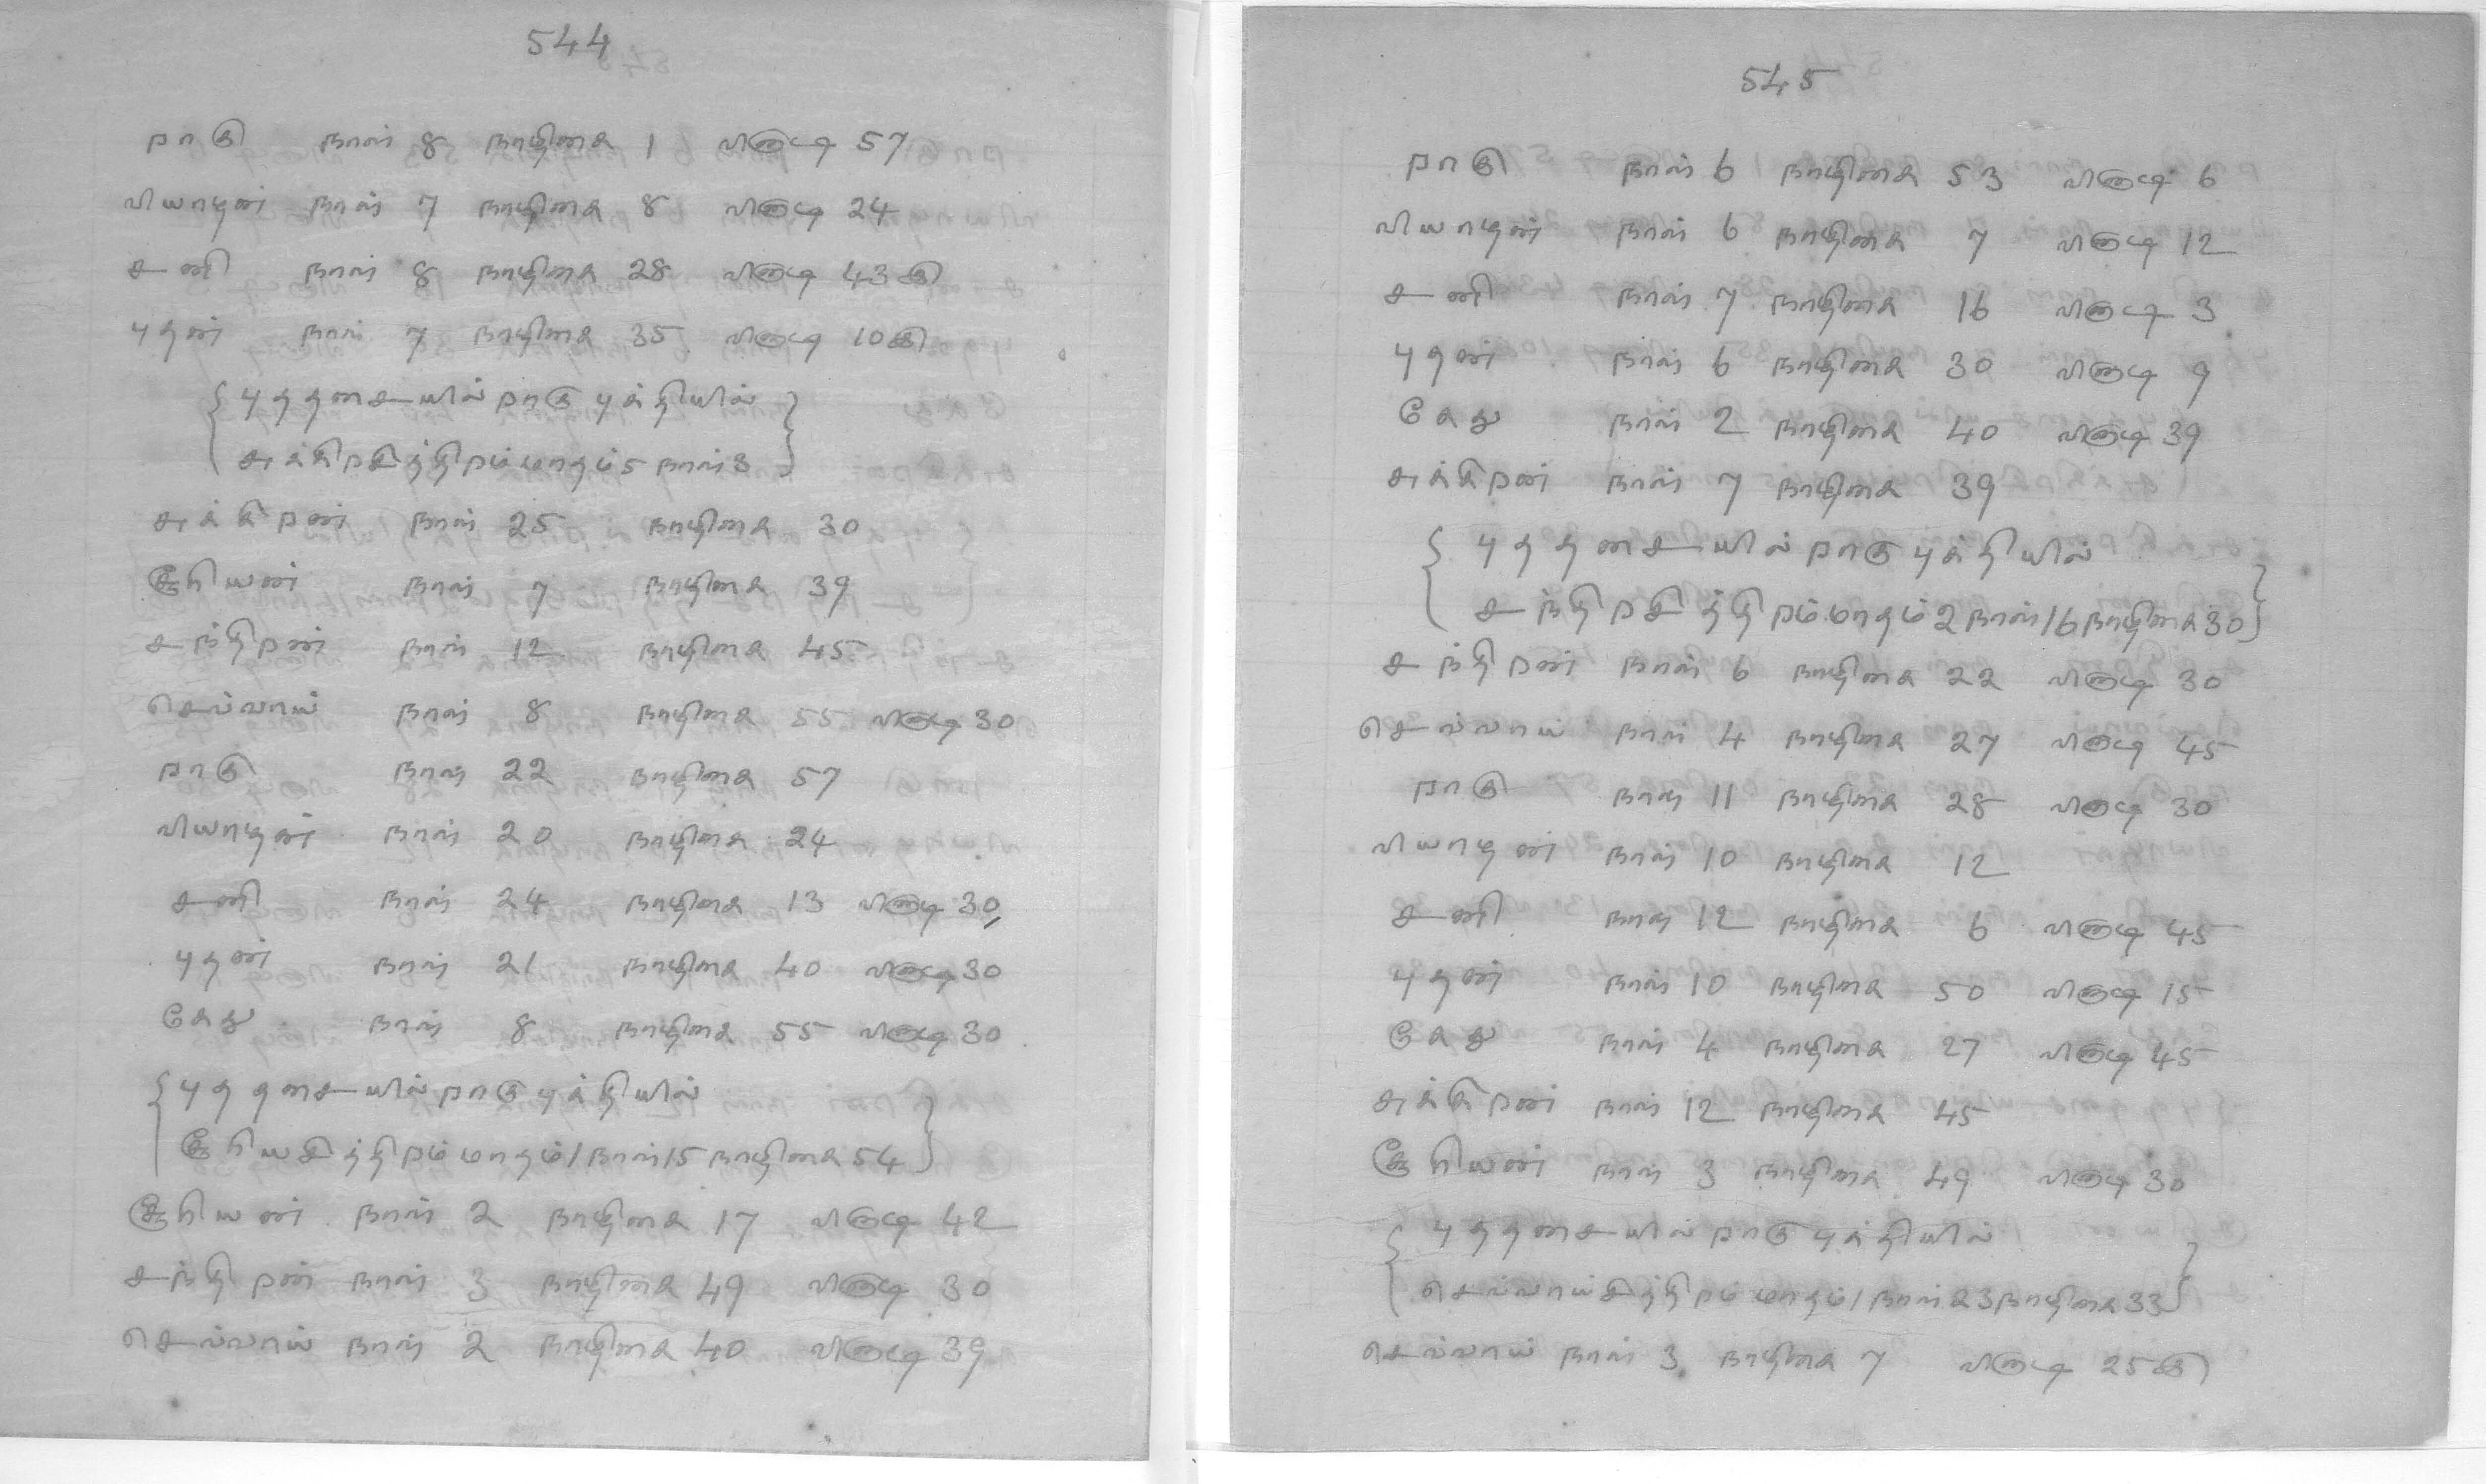 544
றாகு நாள் 8 நாழிகை 1 விநாடி 57
வியாழன் நாள் 7 நாழிகை 8 விநாடி 24
சனி நாள் 8 நாழிகை 28 விநாடி 43
புதன் நாள் 7 நாழிகை 35 விநாடி 10
புததசையில் றாகு புக்தியில்
சுக்கிறசித்திறம் மாதம் 5 நாள் 3
சுக்கிறன் நாள் 25 நாழிகை 30
சூரியன் நாள் 7 நாழிகை 39
சந்திறன் நாள் 12 நாழிகை 45
செவ்வாய் நாள் 8 நாழிகை 55 விநாடி 30
றாகு நாள் 22 நாழிகை 57
வியாழன் நாள் 20 நாழிகை 24
சனி நாள் 24 நாழிகை 13 விநாடி 30
புதன் நாள் 21 நாழிகை 40 விநாடி 30
கேது நாள் 8 நாழிகை 55 விநாடி 30
புததசையில் றாகு புக்தியில்
சூரியசித்திறம் மாதம் 1 நாள் 15 நாழிகை 54
சூரியன் நாள் 2 நாழிகை 17 விநாடி 42
சந்திறன் நாள் 3 நாழிகை 49 விநாடி 30
செவ்வாய் நாள் 2 நாழிகை 40 விநாடி 39
545
றாகு நாள் 6 நாழிகை 53 விநாடி 6
வியாழன் நாள் 6 நாழிகை 7 விநாடி 12
சனி நாள் 7 நாழிகை 16 விநாடி 3
புதன் நாள் 6 நாழிகை 30 விநாடி 9
கேது நாள் 2 நாழிகை 40 விநாடி 39
சுக்கிறன் நாள் 7 நாழிகை 39
புததசையில் றாகு புக்தியில்
சந்திறசித்திறம் மாதம் 2 நாள் 16 நாழிகை 30
சந்திறன் நாள் 6 நாழிகை 22 விநாடி 30
செவ்வாய் நாள் 4 நாழிகை 27 விநாடி 45
றாகு நாள் 11 நாழிகை 28 விநாடி 30
வியாழன் நாள் 10 நாழிகை 12
சனி நாள் 12 நாழிகை 6 விநாடி 45
புதன் நாள் 10 நாழிகை 50 விநாடி 15
கேது நாள் 4 நாழிகை 27 விநாடி 45
சுக்கிறன் நாள் 12 நாழிகை 45
சூரியன் நாள் 3 நாழிகை 49 விநாடி 30
புததசையில் றாகு புக்தியில்
செவ்வாய்சித்திறம் மாதம் 1 நாள் 23 நாழிகை 33
செவ்வாய் நாள் 3 நாழிகை 7 விநாடி 25